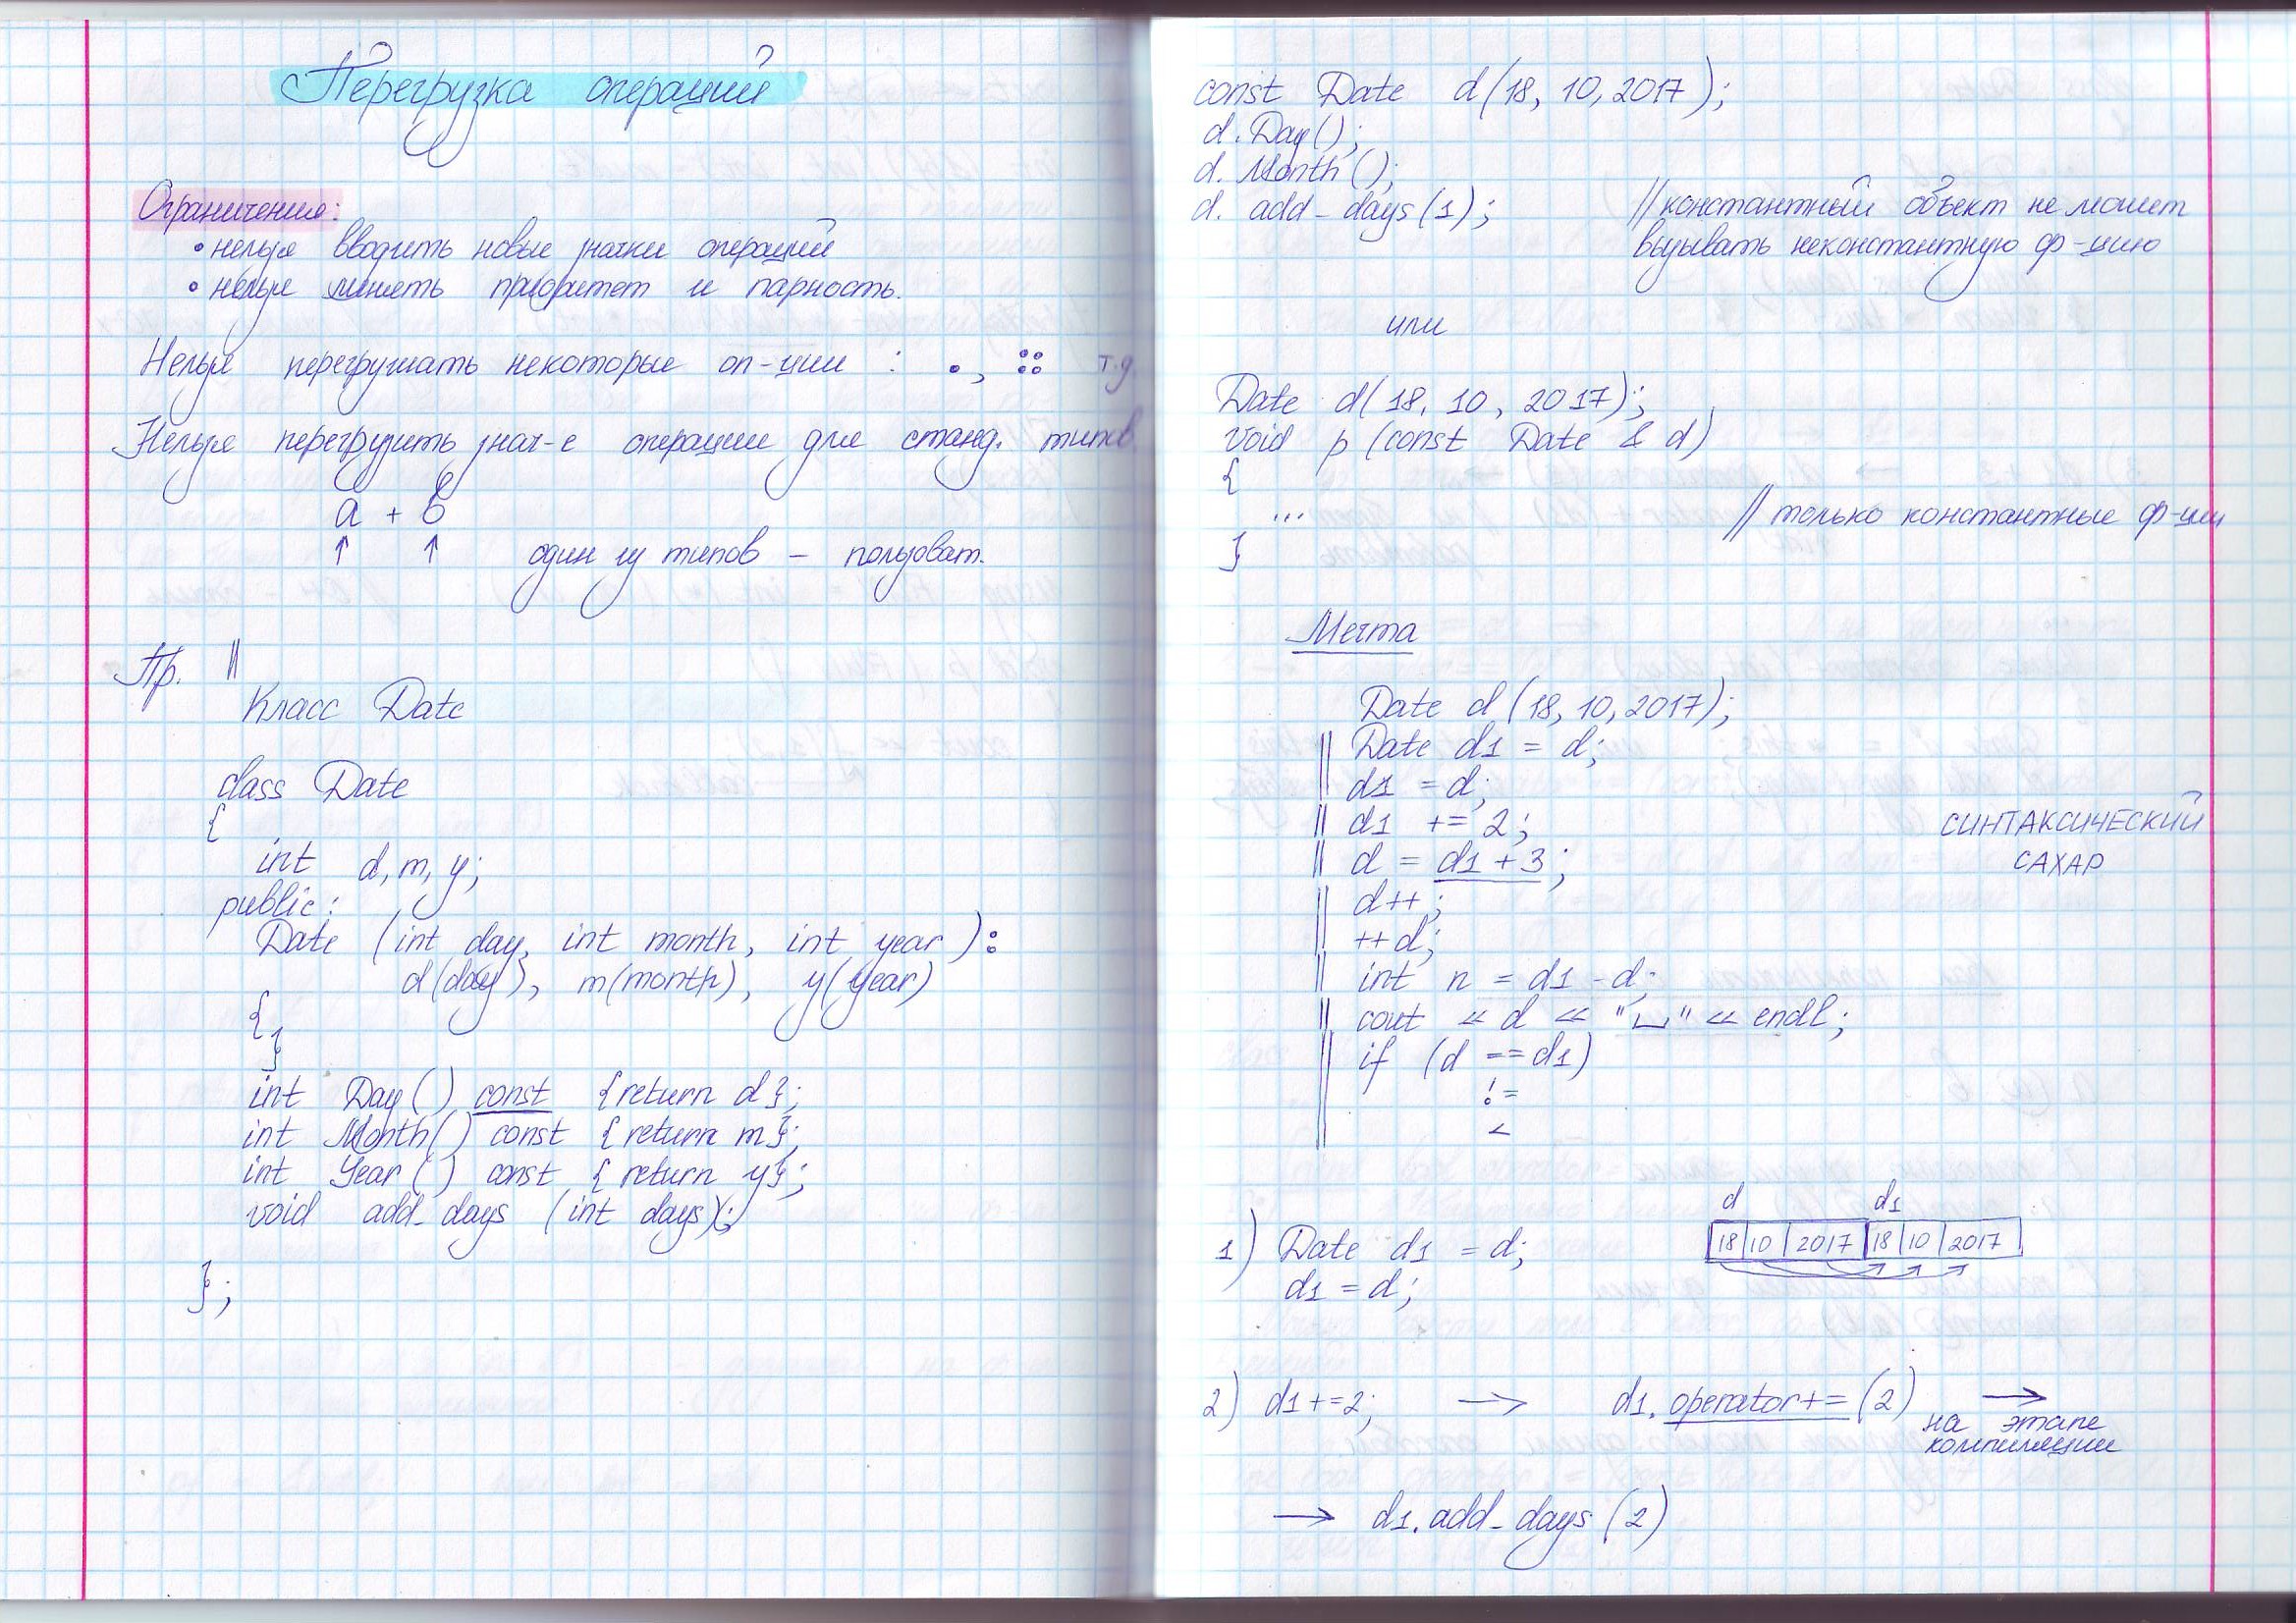 Перегрузка операций
Ограничения:
• нельзя вводить новые значки операций
• нельзя менять приоритет и парность.
Нельзя перегружать некоторые оп-ции : . , :: т.д.
Нельзя перегрузить знач-е операции для станд. типов.
a + b
↑ ↑ один из типов – пользоват.
Пр. ||
Класс Date
class Date
{
int d, m, y;
public:
Date (int day, int month, int year):
d(day), m(month), y(year)
{
}
int Day() const {return d};
int Month() const {return m};
int Year() const {return y};
void add_days (int days);
};
const Date d(18, 10, 2017);
d. Day();
d. Month();
d. add_days(1); //константный объект не может
вызывать неконстантную ф-цию
или
Date d(18, 10, 2017);
void p (const Date & d)
{
... // только константные ф-ции
}
Мечта
Date d (18, 10, 2017);
Date d1 = d;
d1 = d;
d1 += 2; СИНТАКСИЧЕСКИЙ
d = d1 + 3; САХАР
d++;
++d;
int n = d1 - d;
cout << d << "␣" << endl;
if (d == d1)
!=
<
d d1
1) Date d1 = d; 18 10 2017 18 10 2017
d1 = d;
2) d1 += 2; → d1. operator+= (2) →
на этапе
компиляции
→ d1. add_days (2)